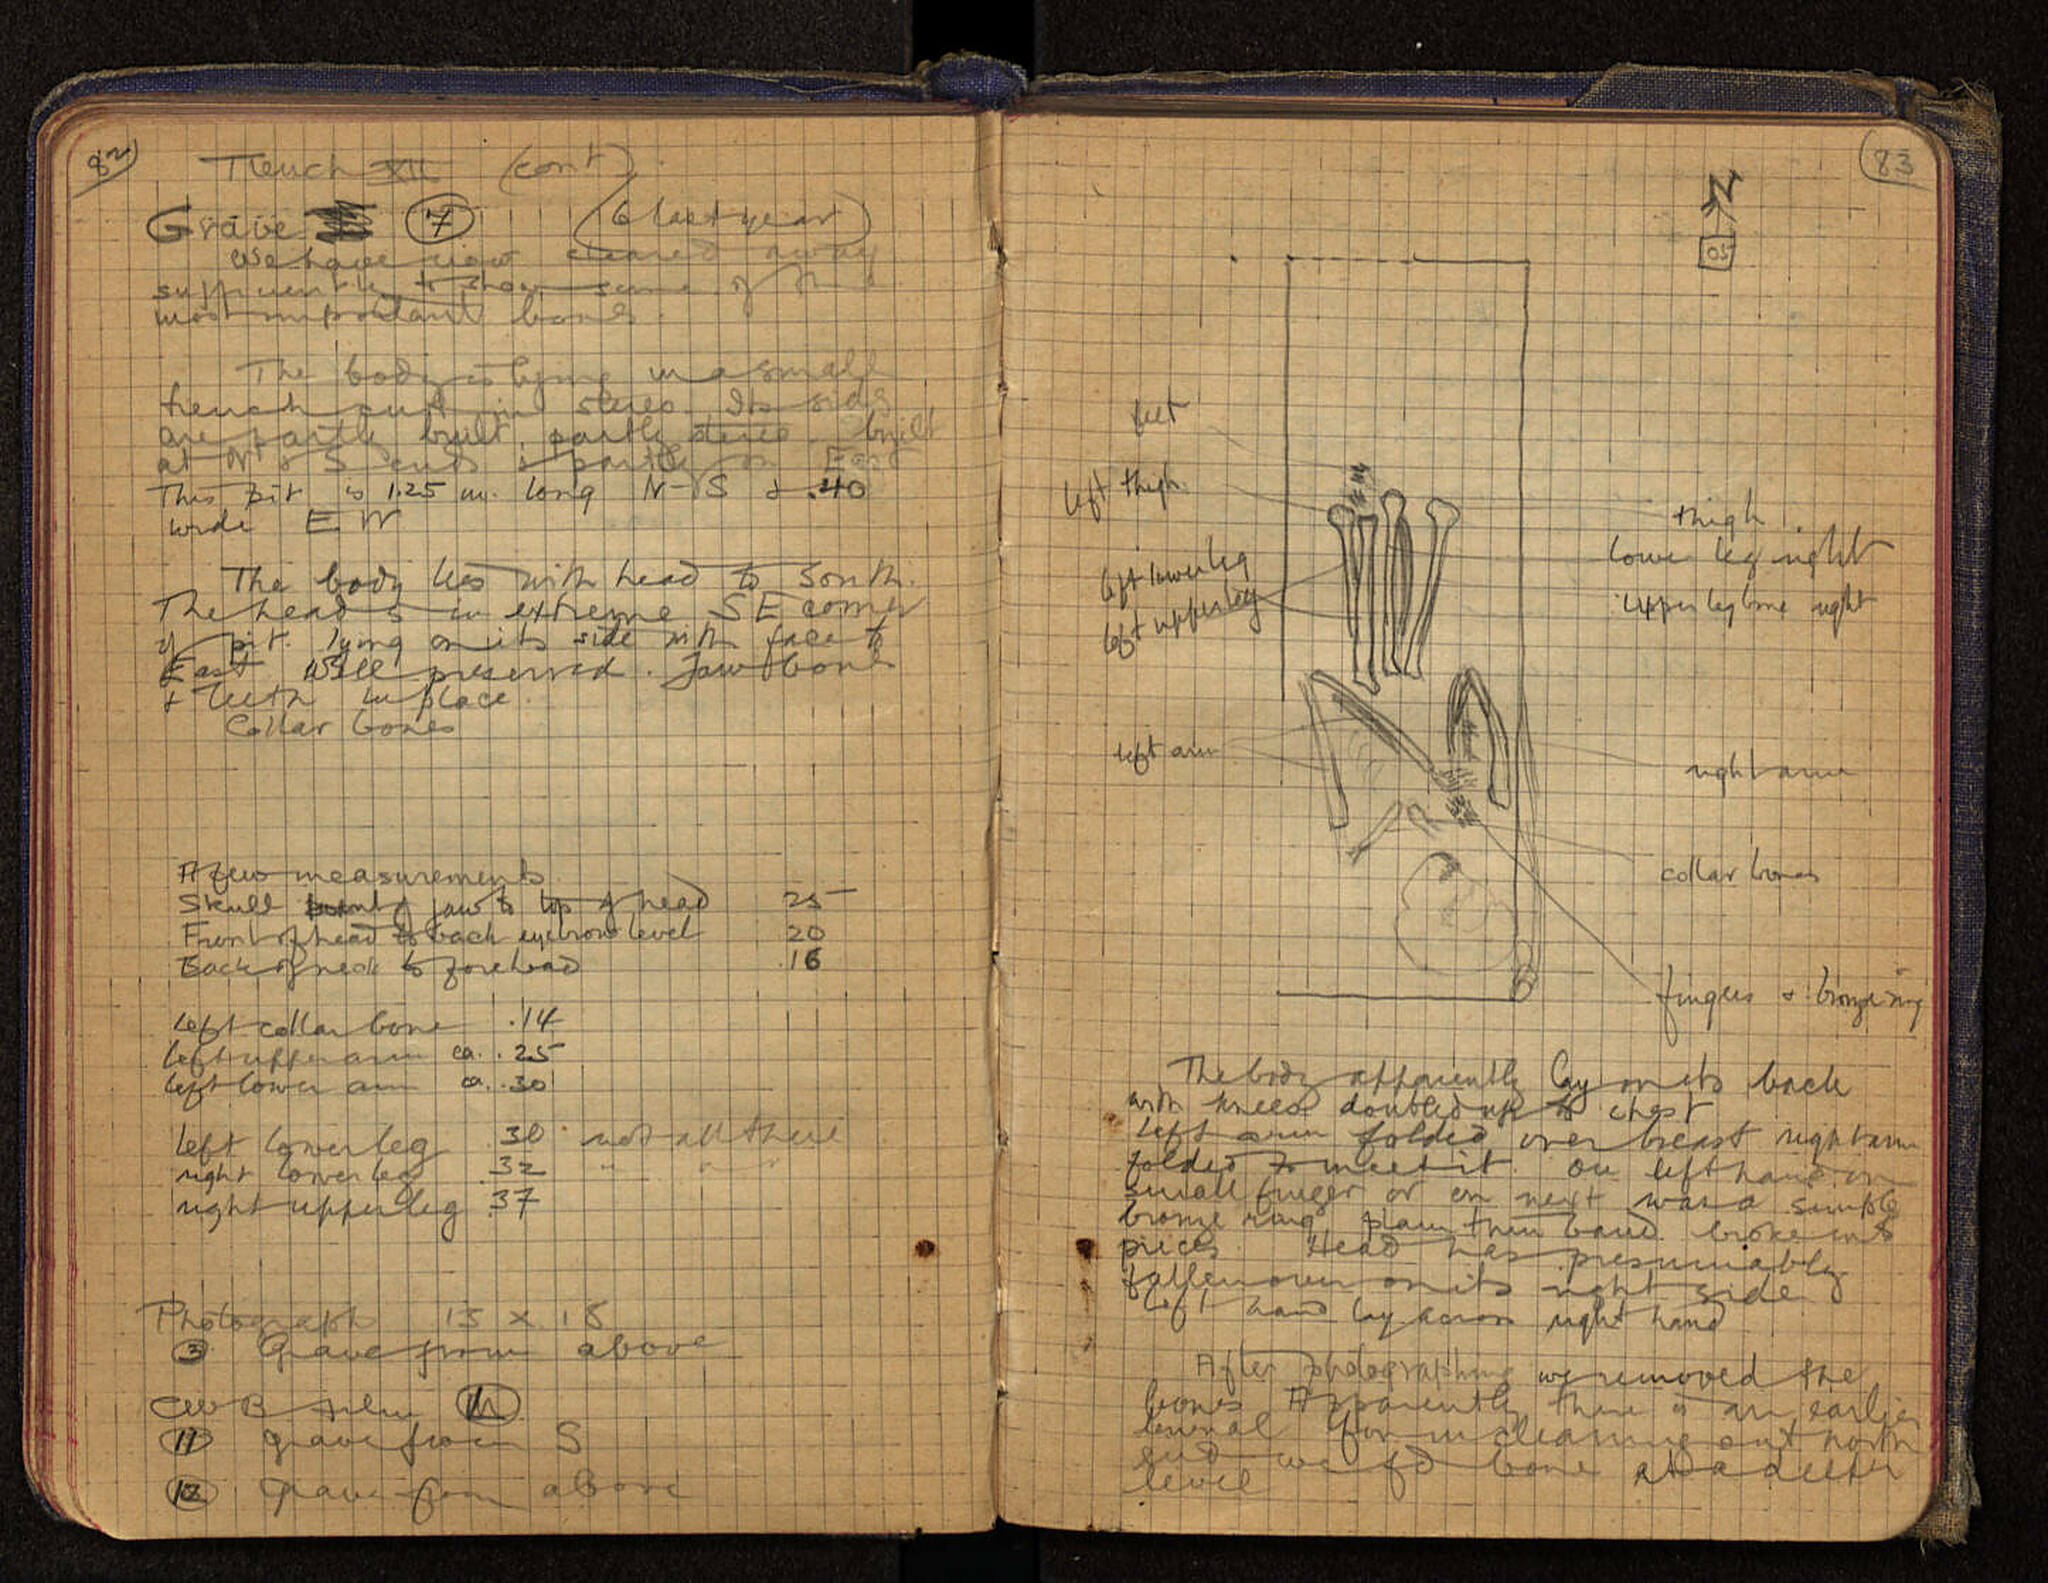 82
Trench XII (cont)
Grave 7 (6 last year)
We have now cleared away
sufficiently to show some of the
most important bones.
The body is lying in a small
trench cut in stereo. Its sides
are partly built, partly stereo. built
at N & S ends & partly on East
This pit is 1.25 m. long N-S & .40
wide E W
The body lies with head to South.
The head is in extreme S E corner
of pit. lying on its side with face to
East Well preserved. Jaw bone
& teeth in place.
Collar bones
A few measurements
Skull of jaw to top of head 25
Front of head to back eyebrow level 20
Back of neck to forehead .16
left collar bone .14
left upper arm ca. .25
left lower arm ca. .30
left lower leg .30 not all there
right lower leg .32 " " "
right upper leg .37
Photograph 13 x 18
3 Grave from above
CWB film
11 grave from S
12 Grave from above
83
N
05
feet
left thigh
thigh
lower leg right
left lower leg
upper leg bone right
left upper leg
left arm
right arm
collar bones
fingers & bronze ring
The body apparently lay on its back
with knees doubled up to chest
Left arm folded over breast right arm
folded to meet it. On left hand on
small finger or on next was a simple
bronze ring plain thin band broke into
pieces. Head has presumably
fallen over on its right side
left hand lay across right hand
After photographing we removed the
bones Apparently there is an earlier
burial for in cleaning out north
end we fd bone at a deeper
level